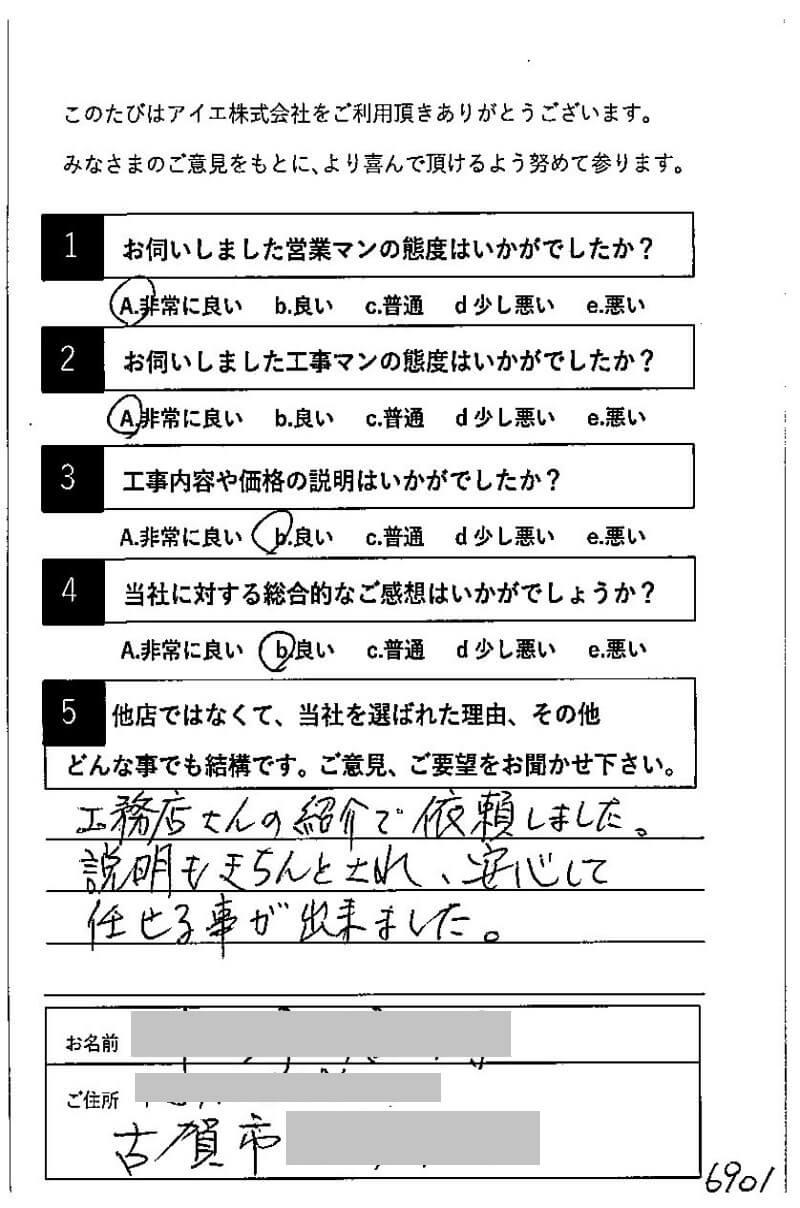 このたびはアイエ株式会社をご利用頂きありがとうございます。
みなさまのご意見をもとに、より喜んで頂けるよう努めて参ります。
1 お伺いしました営業マンの態度はいかがでしたか？
A.非常に良い b.良い c.普通 d 少し悪い e.悪い
2 お伺いしました工事マンの態度はいかがでしたか？
A.非常に良い b.良い c.普通 d 少し悪い e.悪い
3 工事内容や価格の説明はいかがでしたか？
A.非常に良い b.良い c.普通 d 少し悪い e.悪い
4 当社に対する総合的なご感想はいかがでしょうか？
A.非常に良い b.良い c.普通 d 少し悪い e.悪い
5 他店ではなくて、当社を選ばれた理由、その他
どんな事でも結構です。ご意見、ご要望をお聞かせ下さい。
工務店さんの紹介で依頼しました。
説明もきちんとされ、安心して
任せる事が出来ました。
お名前
ご住所
古賀市
6901